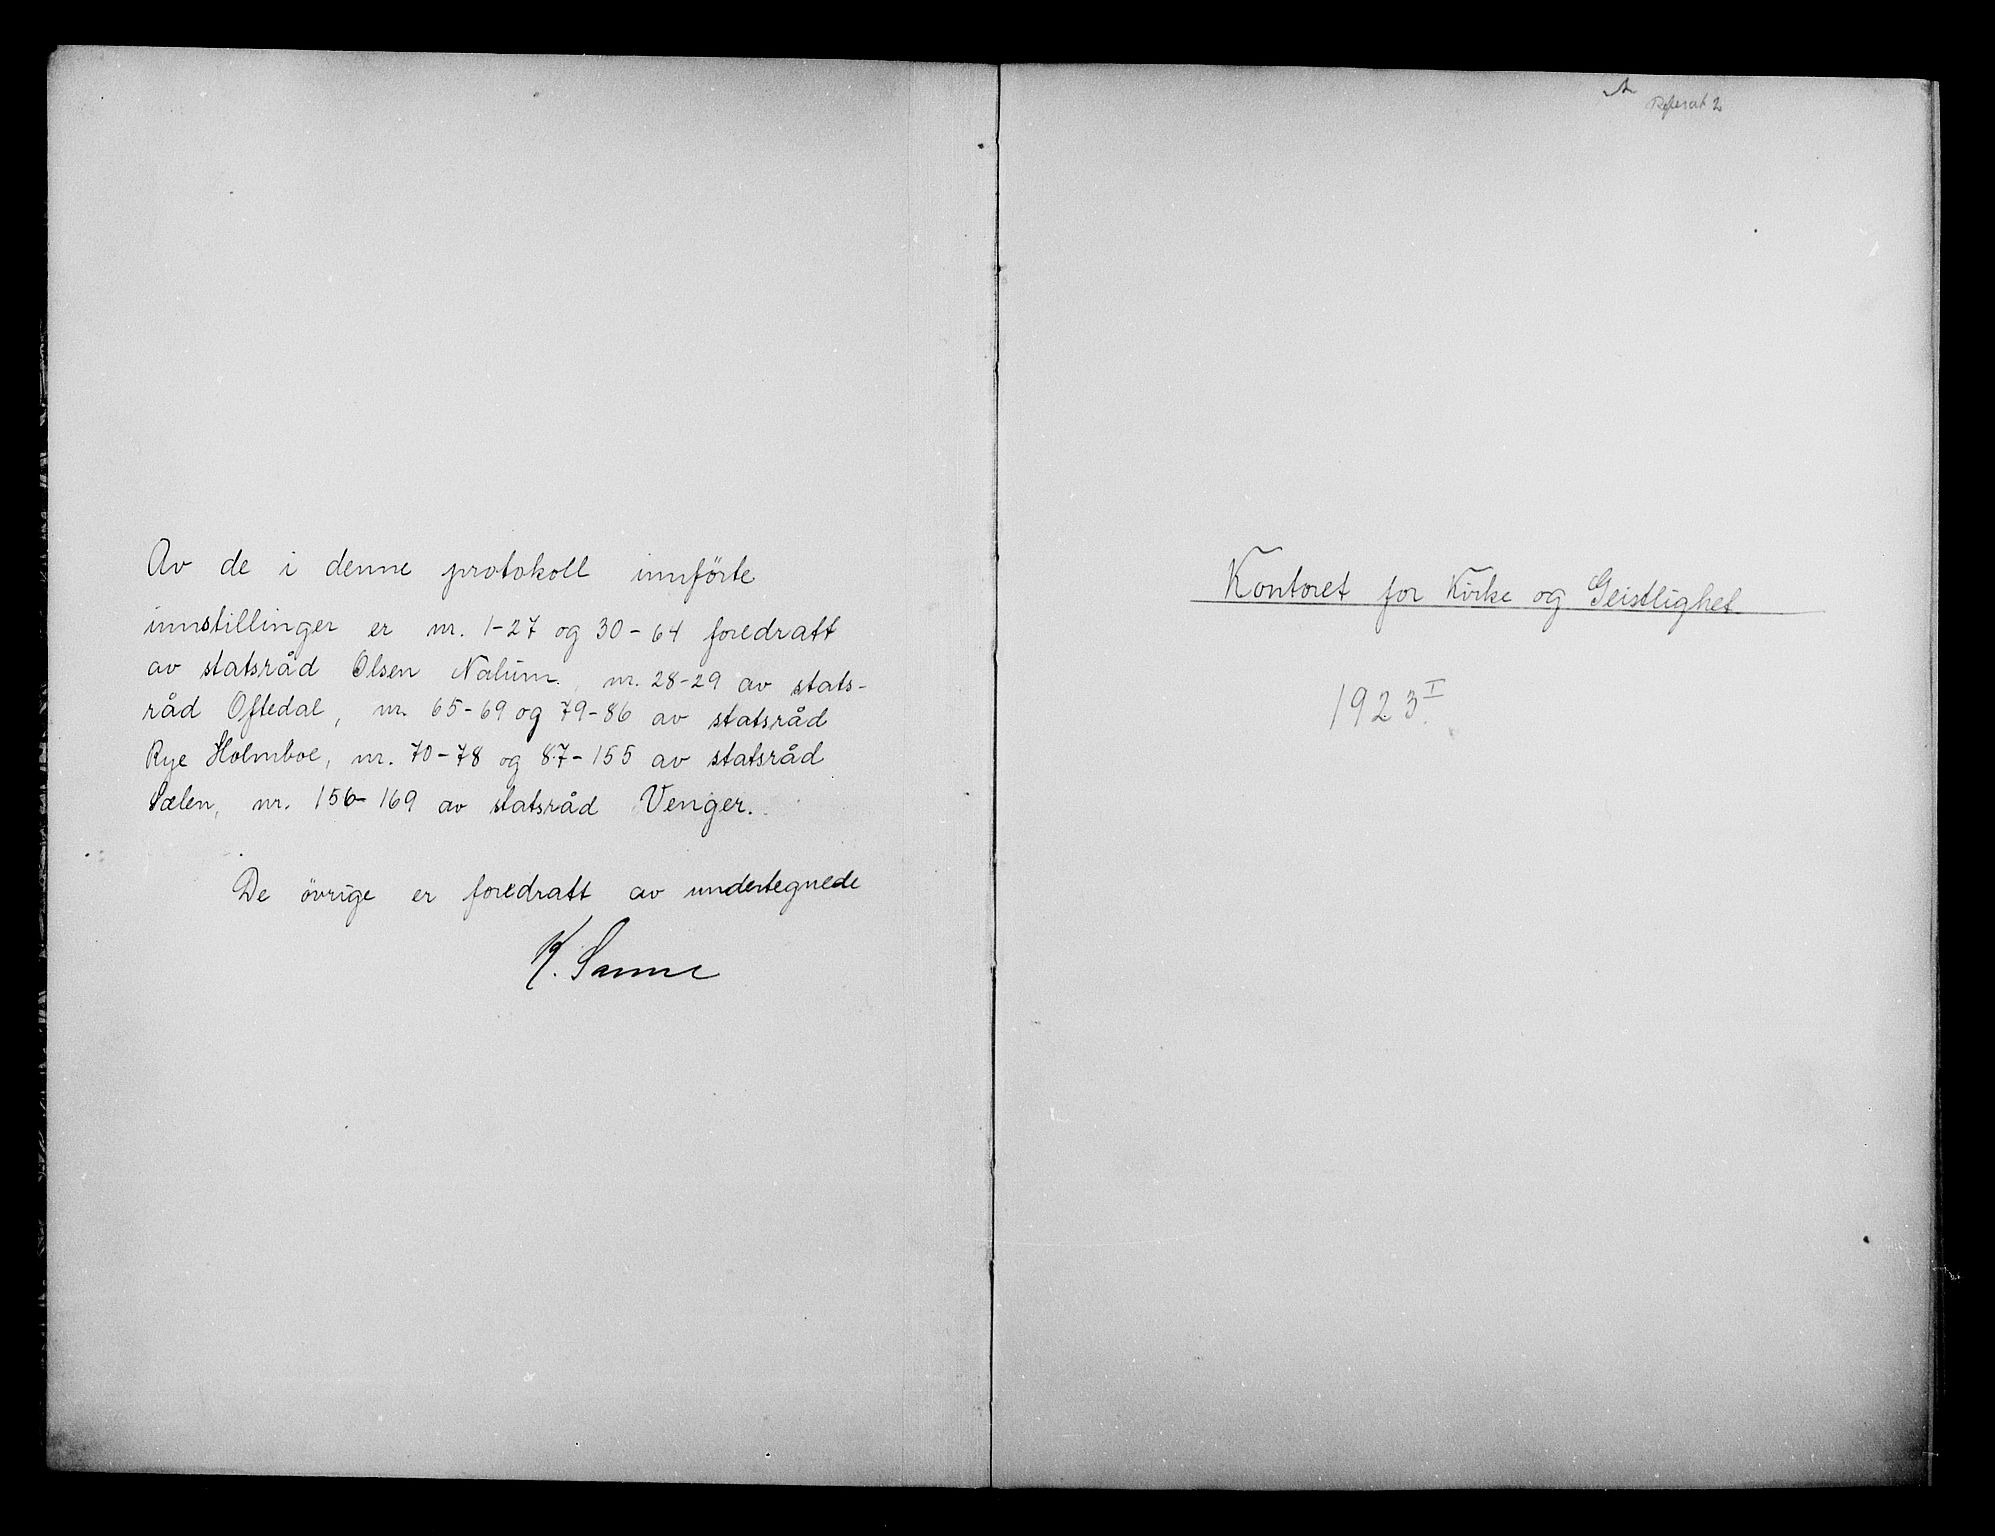 Av de i denne protokoll innförte
innstillinger er nr. 1-27 og 30-64 foredratt
av statsråd Olsen Nalum, nr. 28-29 av stats-
råd Oftedal, nr. 65-69 og 79-86 av statsråd
Rye Holmboe, nr. 70-78 og 87-155 av statsråd
Sælen, nr. 156-169 av statsråd Venger.
De övrige er foredratt av undertegnede
K. Sanne
Referat 2
Kontoret for Kirke og Geistlighet
1923 I